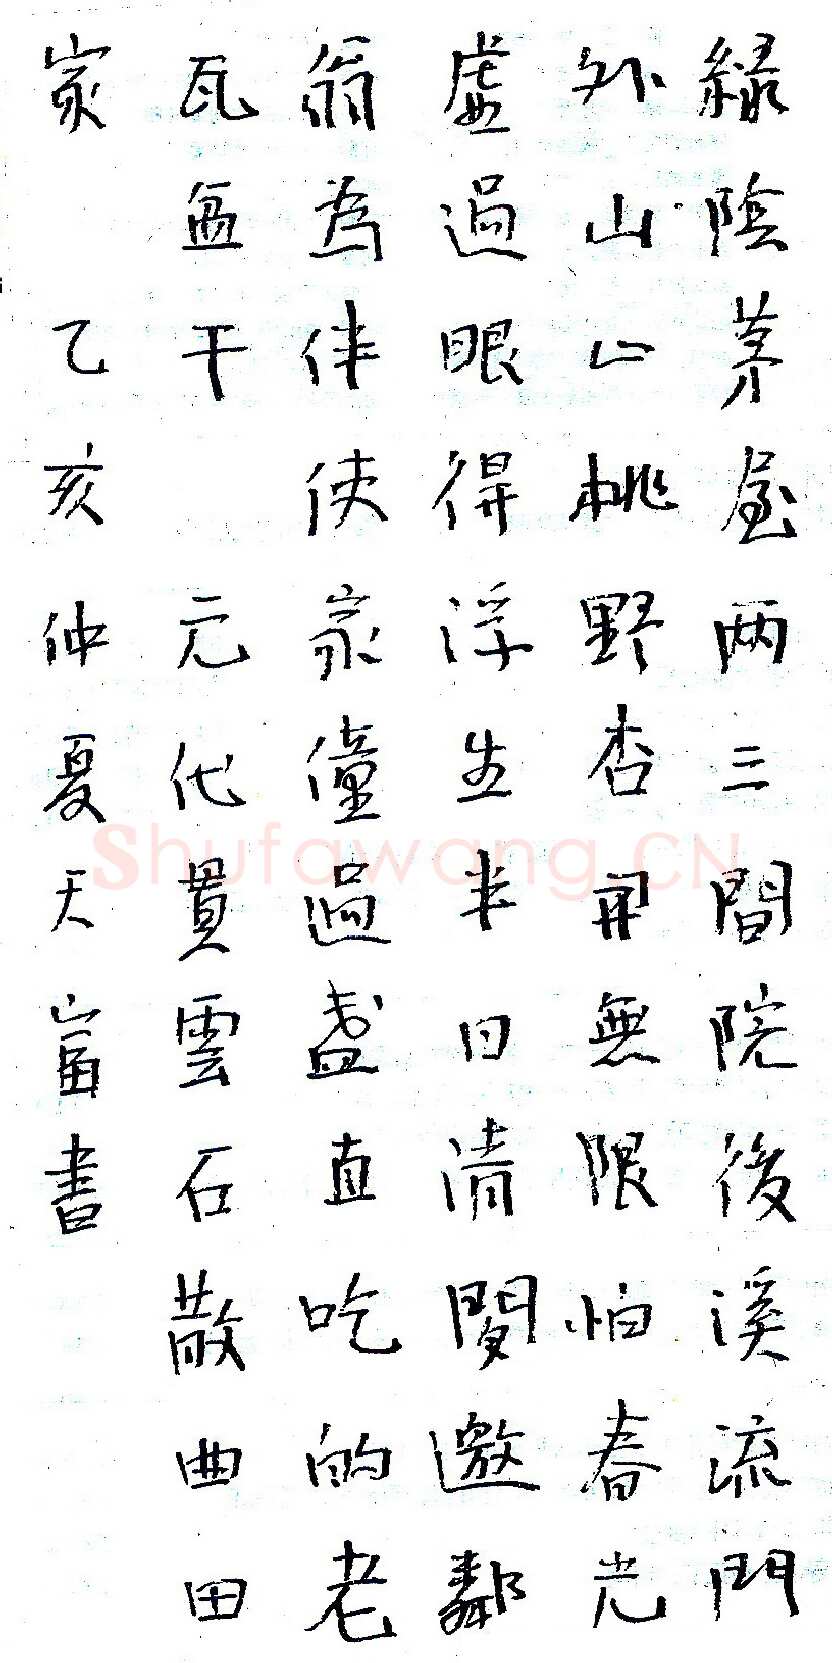 緑陰茅屋两三間院後溪流門
外山山桃野杏開無限怕春光
虚過眼得浮生半日清閒邀鄰
翁為伴使家僮過盞直吃的老
瓦盆干 元代貫雲石散曲田
家 乙亥仲夏天富書
Shufawang.CN